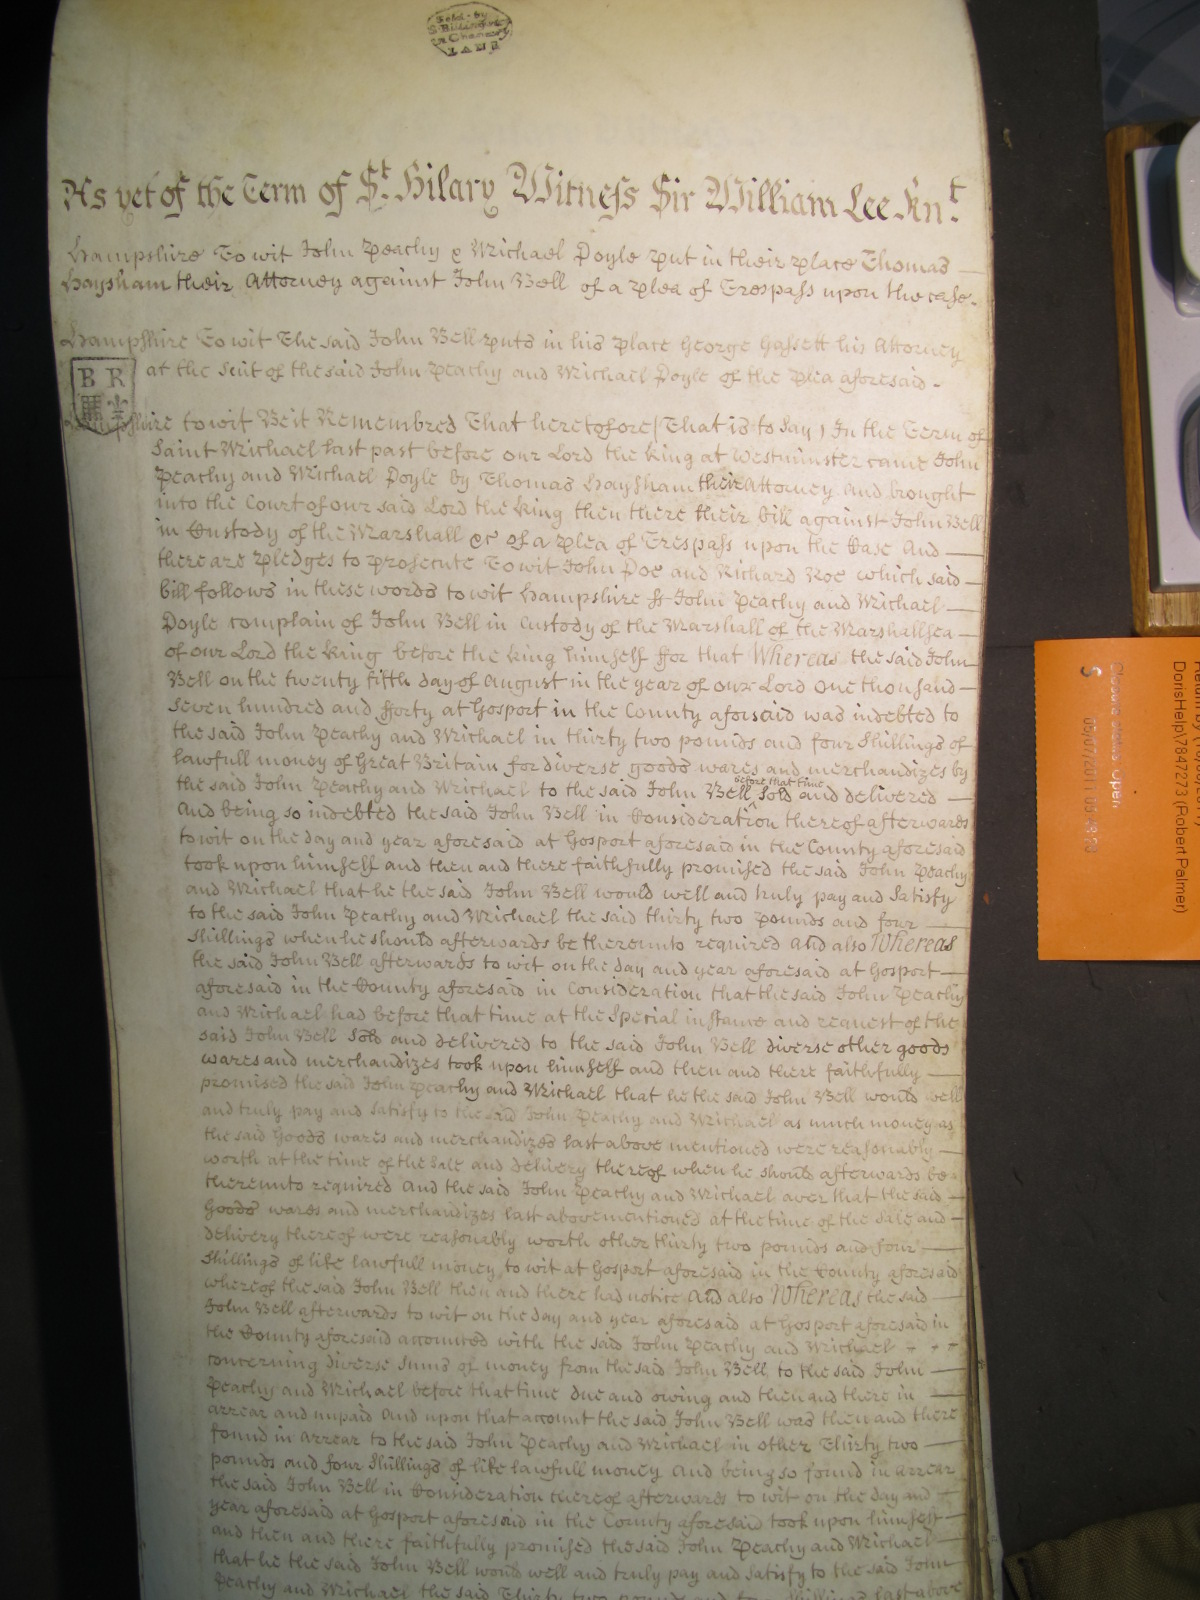 Sold by
in Chancery
LANE
As yet of the Term of St. Hilary Witness Sir William Lee Knt.
Hampshire To wit John Peachy & Michael Doyle put in their place Thomas
Haysham their Attorney against John Bell of a plea of Trespass upon the case.
Hampshire To wit The said John Bell puts in his place George Gassett his Attorney
at the Suit of the said John Peachy and Michael Doyle of the plea aforesaid.
B R
Hampshire to wit Beit Remembred That heretofore (That is to Say) In the Term of
Saint Michael last past before our Lord the King at Westminster came John
Peachy and Michael Doyle by Thomas Haysham their Attorney And brought
into the Court of our said Lord the King then there their bill against John Bell
in Custody of the Marshall &c of a plea of Trespass upon the Case And
there are pledges to prosecute To wit John Doe and Richard Roe which said
bill follows in these words to wit Hampshire ss John Peachy and Michael
Doyle complain of John Bell in Custody of the Marshall of the Marshallsea
of our Lord the King before the King himself ffor that Whereas the said John
Bell on the twenty fifth day of August in the year of our Lord One thousand
seven hundred and fforty at Gosport in the County aforsaid was indebted to
the said John Peachy and Michael in thirty two pounds and four Shillings of
lawfull money of Great Britain for diverse goods wares and merchandizes by
the said John Peachy and Michael to the said John Bell before that time Sold and delivered
And being so indebted the said John Bell in Consideration thereof afterwards
to wit on the day and year aforesaid at Gosport aforesaid in the County aforesaid
took upon himself and then and there faithfully promised the said John Peachy
and Michael that he the said John Bell would well and truly pay and Satisfy
to the said John Peachy and Michael the said thirty two pounds and four
Shillings when he should afterwards be thereunto required And also Whereas
the said John Bell afterwards to wit on the day and year aforesaid at Gosport
aforesaid in the County aforesaid in Consideration that the said John Peachy
and Michael had before that time at the Special instance and request of the
said John Bell Sold and delivered to the said John Bell diverse other goods
wares and merchandizes took upon himself and then and there faithfully
promised the said John Peachy and Michael that he the said John Bell would well
and truly pay and satisfy to the said John Peachy and Michael as much money as
the said Goods wares and merchandizes last above mentioned were reasonably
worth at the time of the Sale and delivery thereof when he should afterwards be
thereunto required And the said John Peachy and Michael aver that the said
Goods wares and merchandizes last abovementioned at the time of the Sale and
delivery thereof were reasonably worth other thirty two pounds and four
Shillings of like lawfull money to wit at Gosport aforesaid in the County aforesaid
whereof the said John Bell then and there had notice And also Whereas the said
John Bell afterwards to wit on the day and year aforesaid at Gosport aforesaid in
the County aforesaid accounted with the said John Peachy and Michael
concerning diverse Sums of money from the said John Bell to the said John
Peachy and Michael before that time due and owing and then and there in
arrear and unpaid And upon that account the said John Bell was then and there
found in Arrear to the said John Peachy and Michael in other Thirty two
pounds and four Shillings of like lawfull money And being so found in arrear
the said John Bell in Consideration thereof afterwards to wit on the day and
year aforesaid at Gosport aforesaid in the County aforesaid took upon himself
and then and there faithfully promised the said John Peachy and Michael
that he the said John Bell would well and truly pay and satisfy to the said John
Peachy and Michael the said Thirty two pounds and four Shillings last above
DorisHelp\7847273 (Robert Palmer)